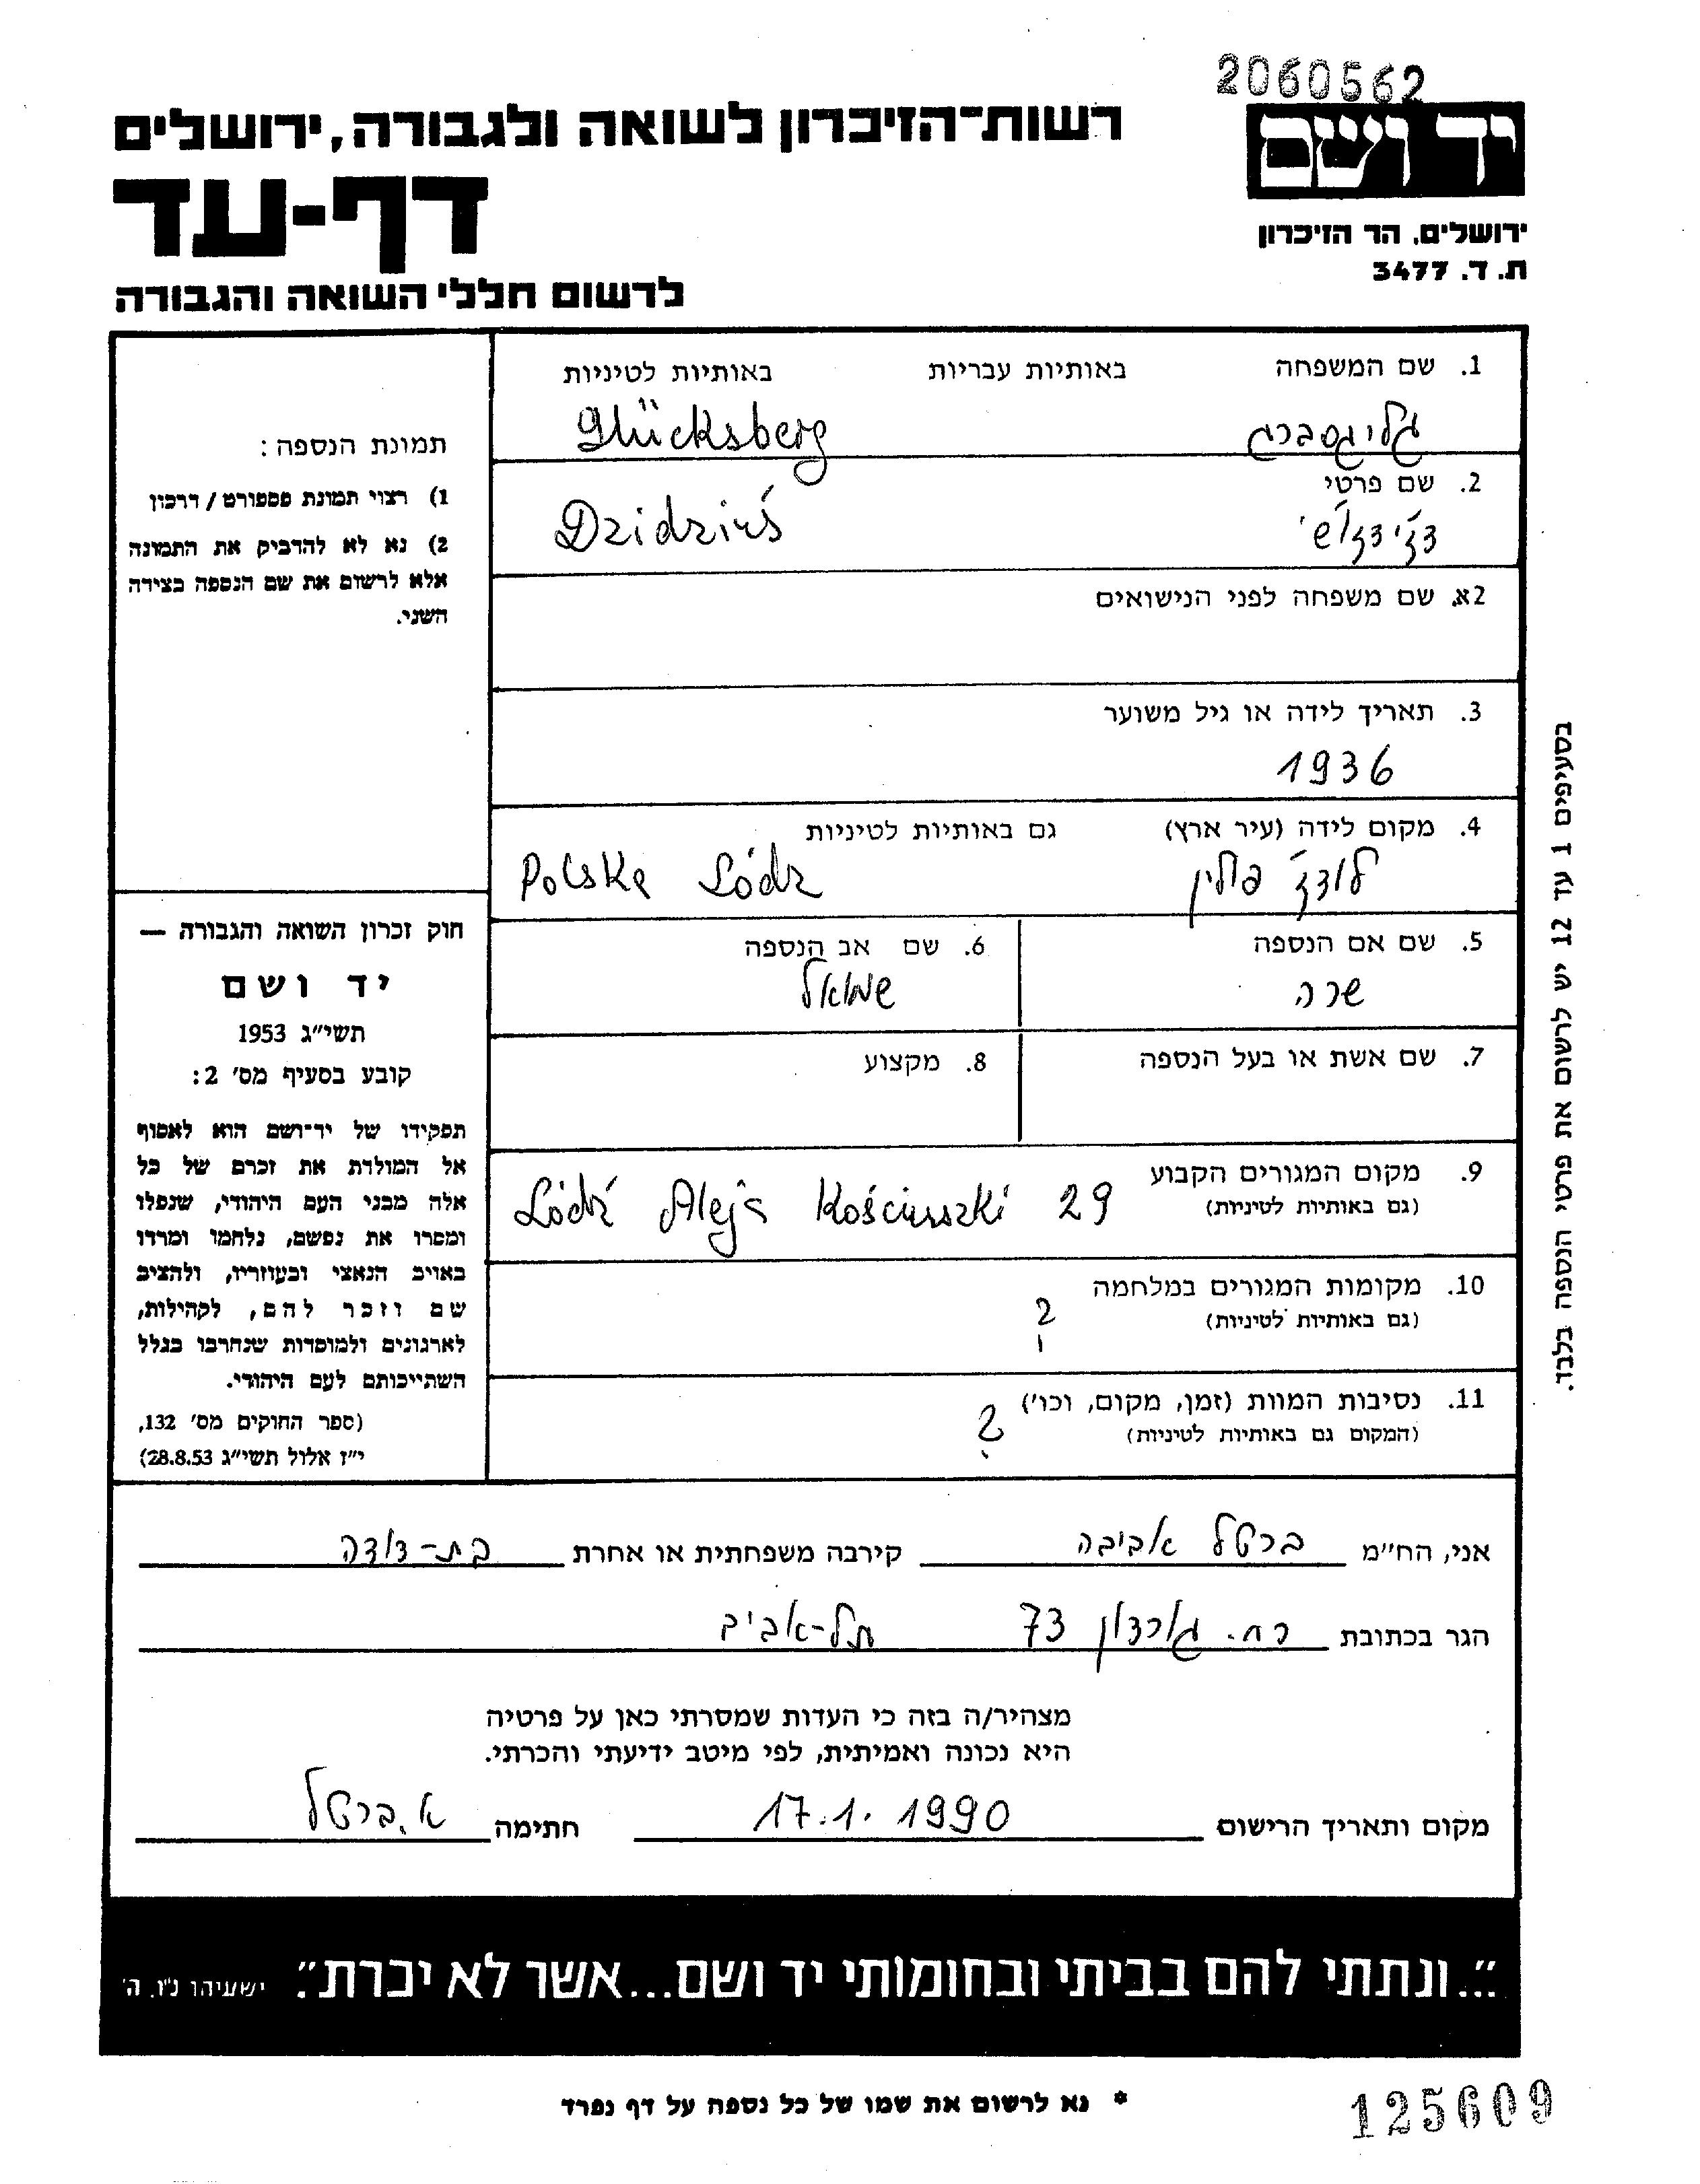 2060562
יד ושם
רשות־הזיכרון לשואה ולגבורה, ירושלים
דף-עד
ירושלים. הר הזיכרון
ת. ד. 3477
לרשום חללי השואה והגבורה
1. שם המשפחה באותיות עבריות באותיות לטיניות
גליגסברג Glücksberg
2. שם פרטי
דז'ידז'וש' Dzidziuś
2א. שם משפחה לפני הנישואים
3. תאריך לידה או גיל משוער
1936
4. מקום לידה (עיר ארץ) גם באותיות לטיניות
לודז' פולין Polska Łódz
5. שם אם הנספה 6. שם אב הנספה
שרה שמואל
7. שם אשת או בעל הנספה 8. מקצוע
9. מקום המגורים הקבוע
(גם באותיות לטיניות)
Łódź Aleja Kościuszki 29
10. מקומות המגורים במלחמה
(גם באותיות לטיניות)
?
11. נסיבות המוות (זמן, מקום, וכו')
(המקום גם באותיות לטיניות)
?
תמונת הנספה:
1) רצוי תמונת פספורט / דרכון
2) נא לא להדביק את התמונה
אלא לרשום את שם הנספה בצידה
השני.
חוק זכרון השואה והגבורה —
יד ושם
תשי"ג 1953
קובע בסעיף מס' 2:
תפקידו של יד־ושם הוא לאסוף
אל המולדת את זכרם של כל
אלה מבני העם היהודי, שנפלו
ומסרו את נפשם, נלחמו ומרדו
באויב הנאצי ובעוזריו, ולהציב
שם וזכר להם, לקהילות,
לארגונים ולמוסדות שנחרבו בגלל
השתייכותם לעם היהודי.
(ספר החוקים מס' 132,
י"ז אלול תשי"ג 28.8.53)
בסעיפים 1 עד 12 יש לרשום את פרטי הנספה בלבד.
אני, הח"מ ברטל אביבה קירבה משפחתית או אחרת בת-דודה
הגר בכתובת רח. גורדון 73 תל-אביב
מצהיר/ה בזה כי העדות שמסרתי כאן על פרטיה
היא נכונה ואמיתית, לפי מיטב ידיעתי והכרתי.
מקום ותאריך הרישום 17.1.1990 חתימה א.ברטל
"...ונתתי להם בביתי ובחומותי יד ושם...אשר לא יכרת". ישעיהו נ"ו. ה'
* נא לרשום את שמו של כל נספה על דף נפרד
125609